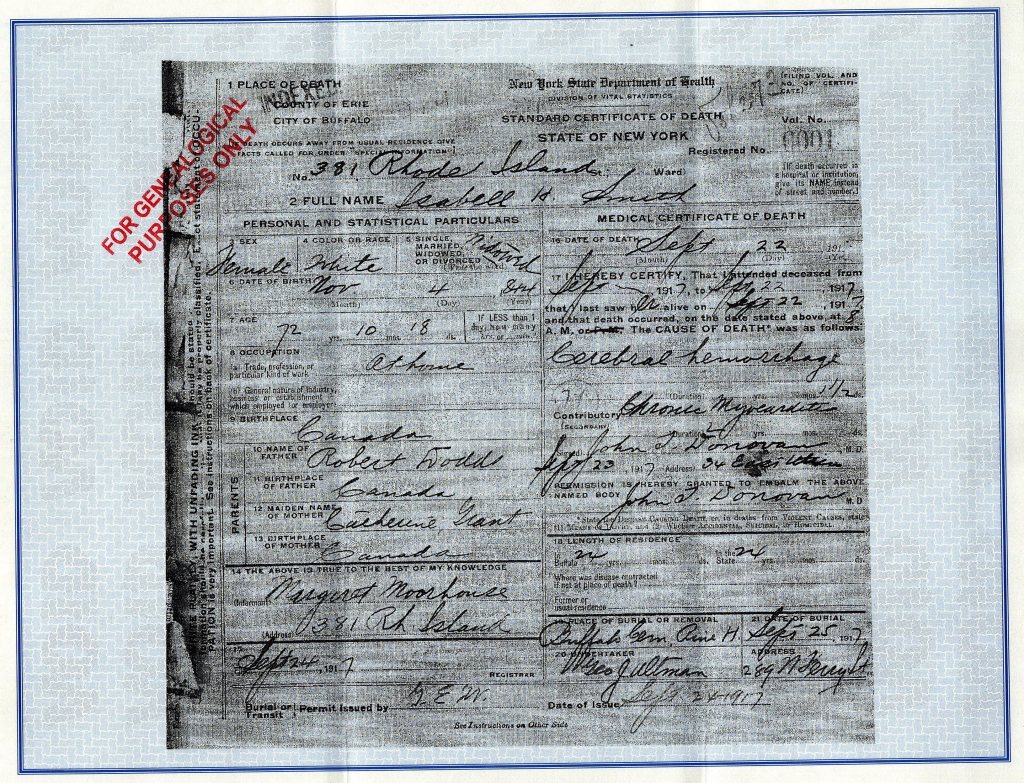 1 PLACE OF DEATH
COUNTY OF ERIE
CITY OF BUFFALO
New York State Department of Health
DIVISION OF VITAL STATISTICS
STANDARD CERTIFICATE OF DEATH
STATE OF NEW YORK
(FILING VOL. AND NO. OF CERTIFICATE)
Vol. No.
Registered No. 6001
FOR GENEALOGICAL
PURPOSES ONLY
DEATH OCCURS AWAY FROM USUAL RESIDENCE GIVE
FACTS CALLED FOR UNDER "SPECIAL INFORMATION"
(If death occurred in
a hospital or institution,
give its NAME instead
of street and number.)
No. 381 Rhode Island Ward)
2 FULL NAME Isabell H. Smith
PERSONAL AND STATISTICAL PARTICULARS
SEX Female
4 COLOR OR RACE White
5 SINGLE, MARRIED, WIDOWED, OR DIVORCED Widowed
6 DATE OF BIRTH Nov 4 844
(Month) (Day) (Year)
7 AGE 72 yrs. 10 mos. 18 ds.
If LESS than 1 day, how many
8 OCCUPATION
(a) Trade, profession, or
particular kind of work At home
(b) General nature of industry,
business or establishment
which employed (or employer)
9 BIRTHPLACE Canada
PARENTS
10 NAME OF FATHER Robert Dodds
11 BIRTHPLACE OF FATHER Canada
12 MAIDEN NAME OF MOTHER Catherine Grant
13 BIRTHPLACE OF MOTHER Canada
14 THE ABOVE IS TRUE TO THE BEST OF MY KNOWLEDGE
(Informant) Margaret Moorhouse
(Address) 381 Rh Island
15
Sept 24, 1917
REGISTRAR
MEDICAL CERTIFICATE OF DEATH
16 DATE OF DEATH Sept 22 191
(Month) (Day) (Yr.)
17 I HEREBY CERTIFY, That I attended deceased from
Sept 1917, to Sept 22 1917
that I last saw her alive on Sept 22, 1917
and that death occurred, on the date stated above, at 8
A. M. or P. M. The CAUSE OF DEATH* was as follows:
Cerebral hemorrhage
(Duration) yrs. mos. 1 1/2
Contributory Chronic Myocarditis
(SECONDARY) (Duration) 2 yrs. mos. ds.
(Signed) John T. Donovan M. D.
Sept 23 1917 (Address) 34
PERMISSION IS HEREBY GRANTED TO EMBALM THE ABOVE
NAMED BODY John T. Donovan M D
*State the DISEASE CAUSING DEATH, or, in deaths from VIOLENT CAUSES, state
(1) MEANS OF INJURY, and (2) Whether ACCIDENTAL, SUICIDAL, or HOMICIDAL.
18 LENGTH OF RESIDENCE
Buffalo 24 yrs. mos. ds. In the State 24 yrs. mos. ds.
Where was disease contracted
if not at place of death?
Former or
usual residence
19 PLACE OF BURIAL OR REMOVAL Buffalo Cem. Pine H.
21 DATE OF BURIAL Sept 25, 1917
20 UNDERTAKER Geo J Altman
ADDRESS 289 W Ferry St
Burial or Transit Permit issued by G. E. W.
Date of Issue Sept 24 1917
See Instructions on Other Side